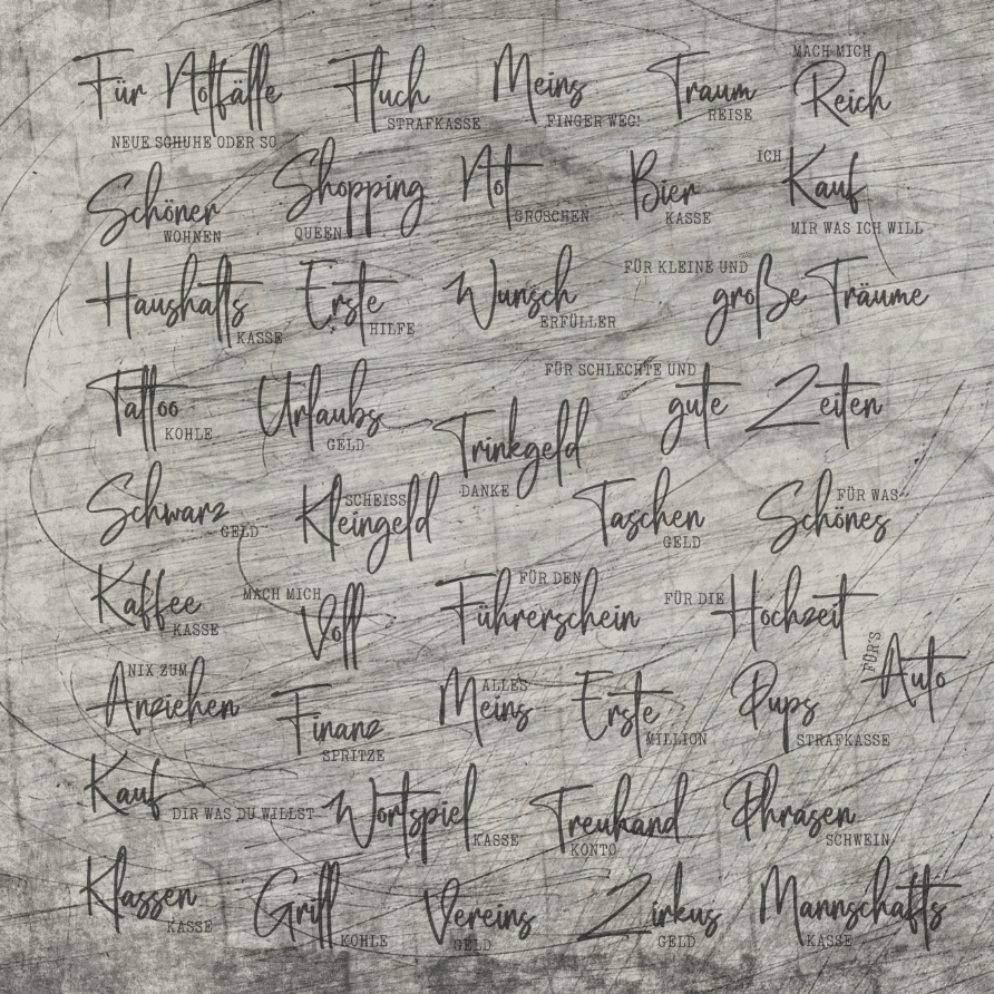 Für Notfälle
NEUE SCHUHE ODER SO
Fluch
STRAFKASSE
Meins
FINGER WEG!
Traum
REISE
MACH MICH
Reich
Schöner
WOHNEN
Shopping
QUEEN
Not
GROSCHEN
Bier
KASSE
ICH
Kauf
MIR WAS ICH WILL
Haushalts
KASSE
Erste
HILFE
Wunsch
ERFÜLLER
FÜR KLEINE UND
große Träume
Tattoo
KOHLE
Urlaubs
GELD
Trinkgeld
DANKE
FÜR SCHLECHTE UND
gute Zeiten
Schwarz
GELD
SCHEISS
Kleingeld
Taschen
GELD
FÜR WAS
Schönes
Kaffee
KASSE
MACH MICH
Voll
FÜR DEN
Führerschein
FÜR DIE
Hochzeit
FÜR'S
Auto
NIX ZUM
Anziehen
Finanz
SPRITZE
ALLES
Meins
Erste
MILLION
Pups
STRAFKASSE
Kauf
DIR WAS DU WILLST
Wortspiel
KASSE
Treuhand
KONTO
Phrasen
SCHWEIN
Klassen
KASSE
Grill
KOHLE
Vereins
GELD
Zirkus
GELD
Mannschafts
KASSE